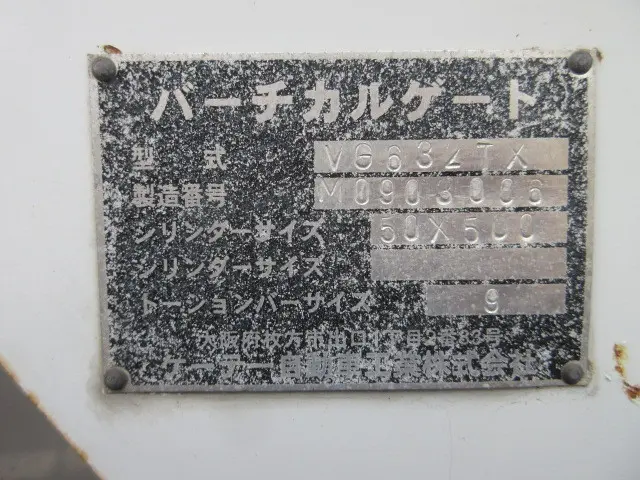 バーチカルゲート
型式 VG634TX
製造番号 M0908006
シリンダーサイズ 50X500
シリンダーサイズ
トーションバーサイズ 9
大阪府枚方市出口1丁目2号83号
ケーテー自動車工業株式会社